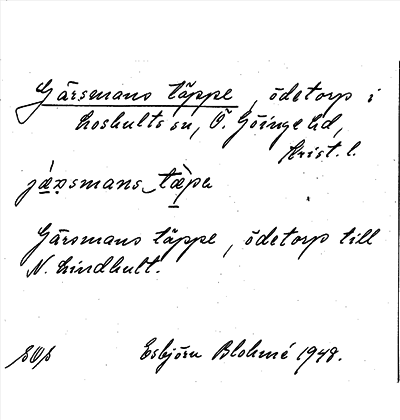 Gärsmans täppe, ödetorp i
Loshults sn, Ö. Göinge hd,
Krist. l.
jæ̀ṣmans tæ̀pa
Gärsmans täppe, ödetorp till
N. Lindhult.
Esbjörn Blohmé 1948.